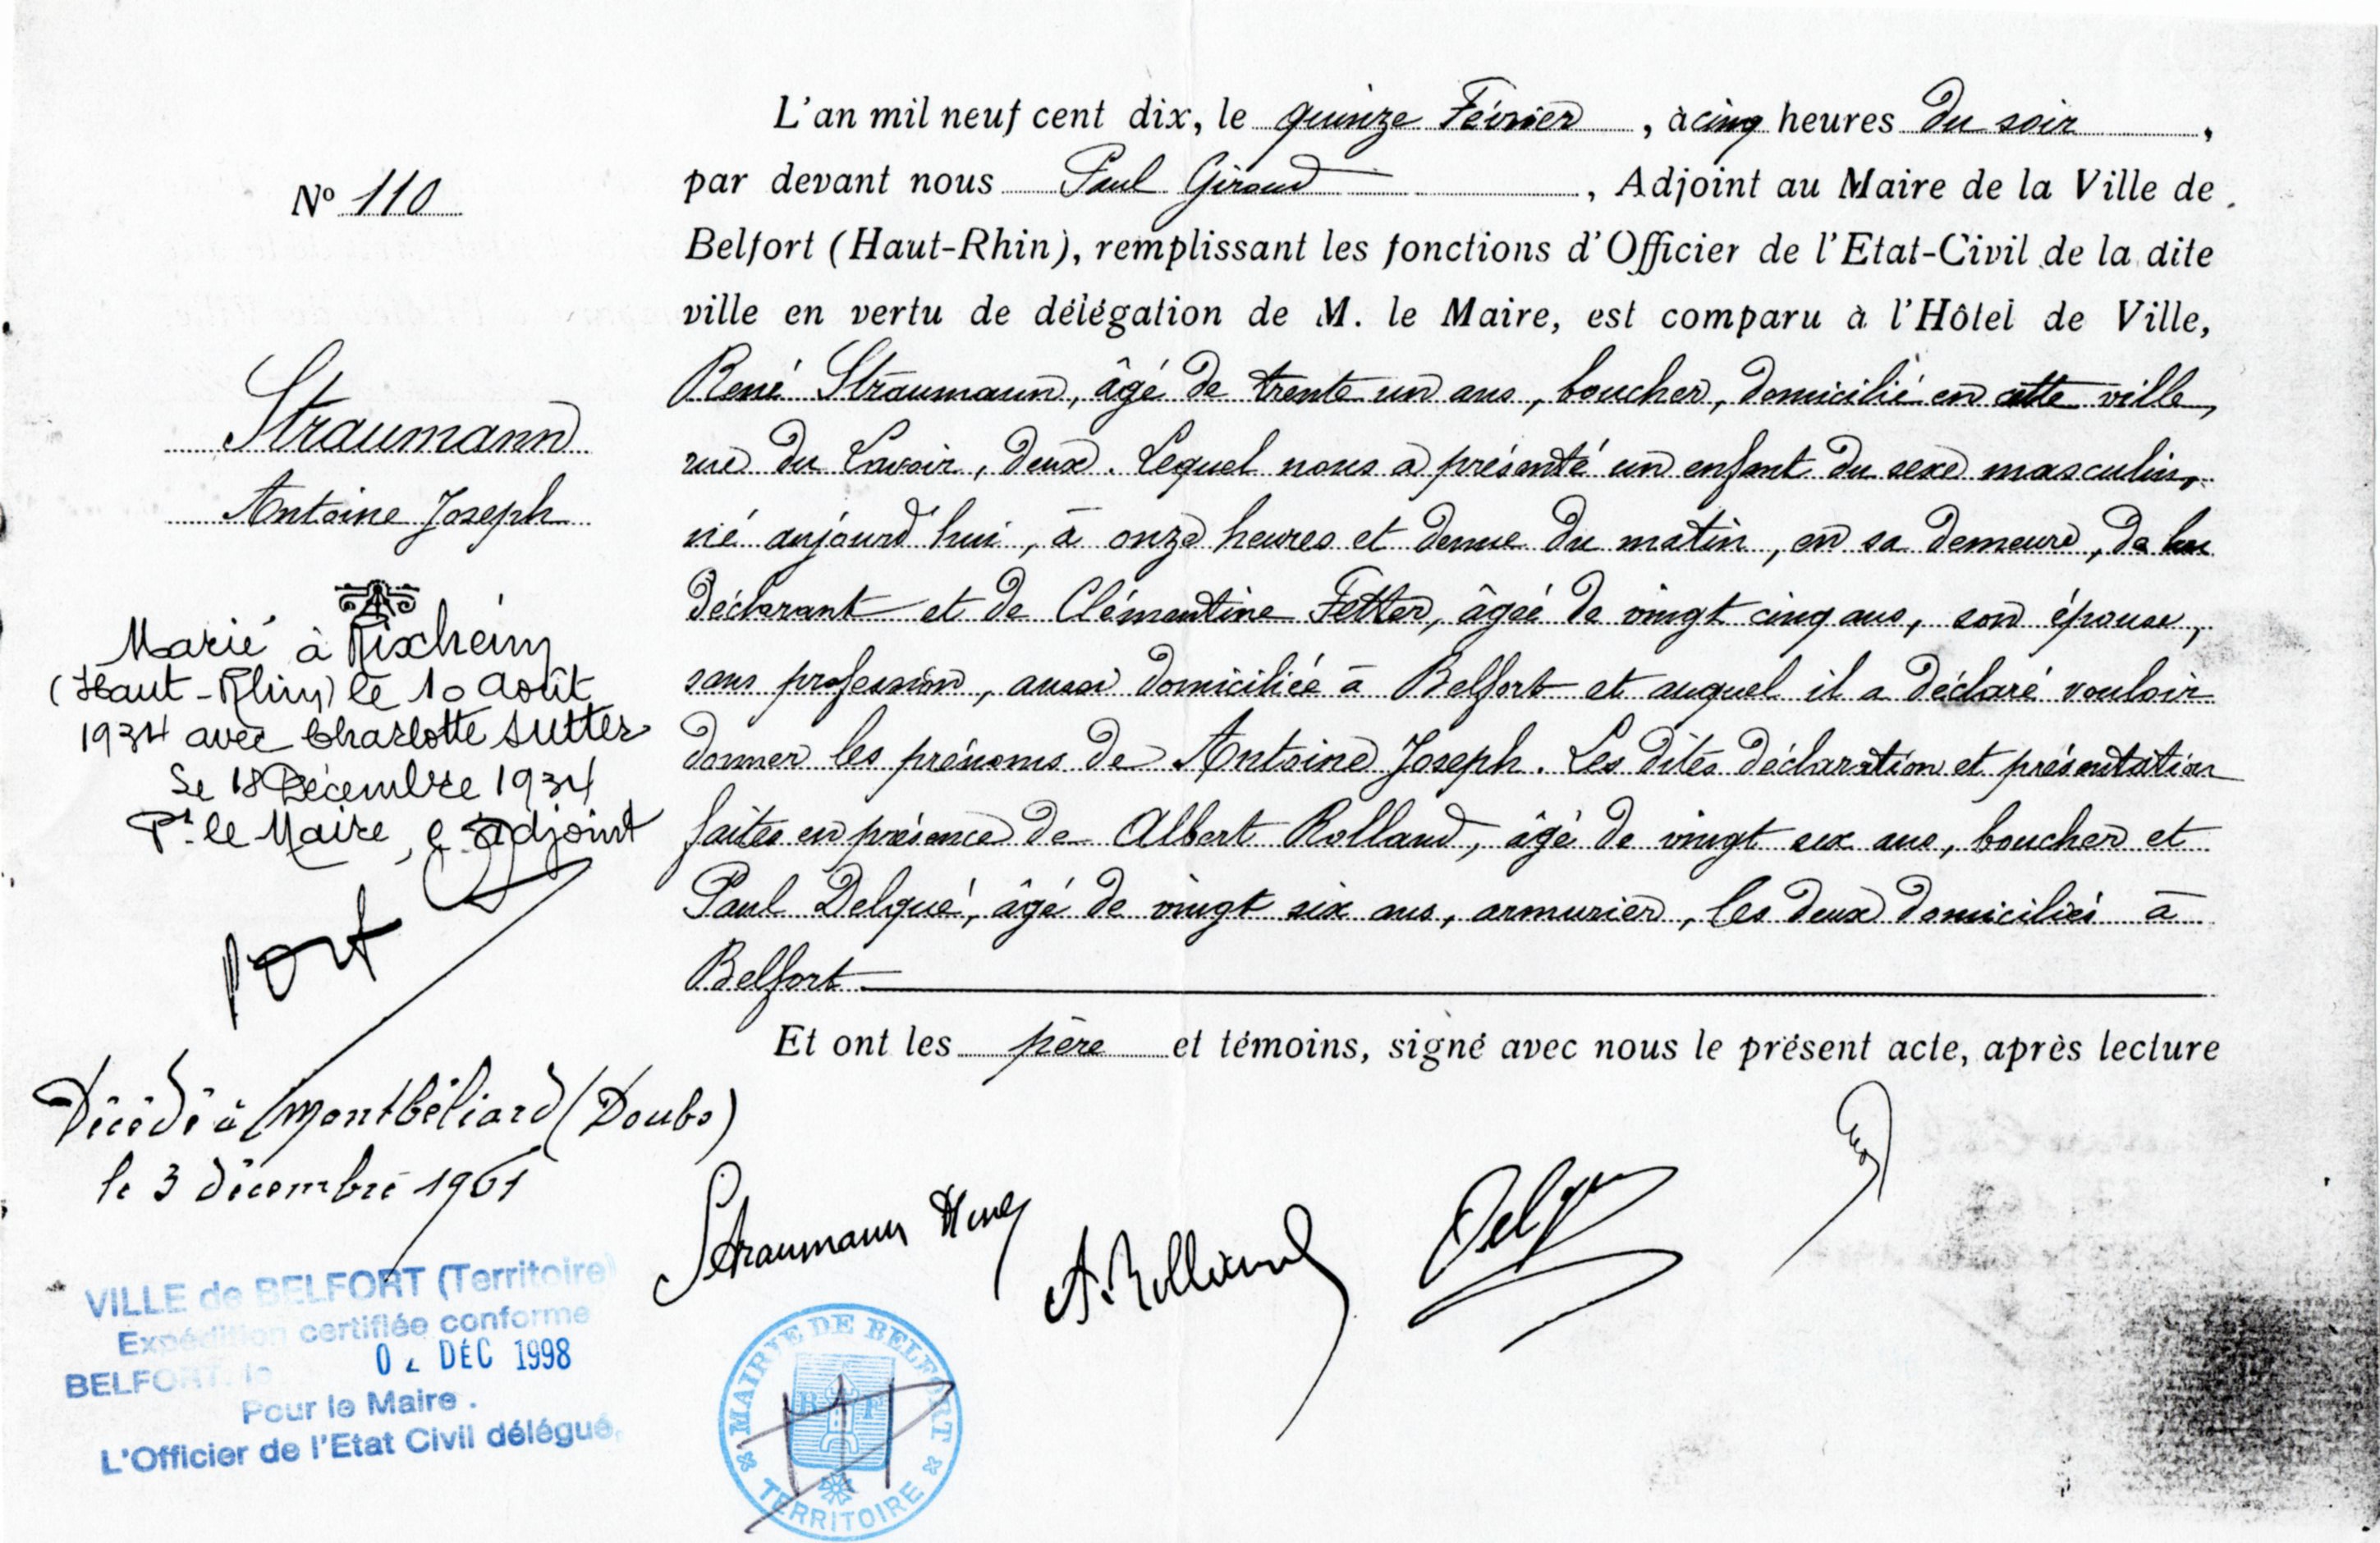 L'an mil neuf cent dix, le quinze Février, à cinq heures du soir,
par devant nous Paul Giraud, Adjoint au Maire de la Ville de
Belfort (Haut-Rhin), remplissant les fonctions d'Officier de l'Etat-Civil de la dite
ville en vertu de délégation de M. le Maire, est comparu à l'Hôtel de Ville,
René Straumann, âgé de trente un ans, boucher, domicilié en cette ville,
rue du Lavoir, deux. Lequel nous a présenté un enfant du sexe masculin,
né aujourd'hui, à onze heures et demie du matin, en sa demeure, de lui
déclarant et de Clémentine Fetter, âgée de vingt cinq ans, son épouse,
sans profession, aussi domiciliée à Belfort et auquel il a déclaré vouloir
donner les prénoms de Antoine Joseph. Les dites déclaration et présentation
faites en présence de Albert Rolland, âgé de vingt six ans, boucher et
Paul Delqué, âgé de vingt six ans, armurier, les deux domiciliés à
Belfort
Et ont les père et témoins, signé avec nous le présent acte, après lecture
Nº 110
Straumann
Antoine Joseph
Marié à Rixheim
(Haut-Rhin) le 10 Août
1934 avec Charlotte Sutter
Le 18 Décembre 1934
Pr. le Maire, l'adjoint
Décédé à Montbéliard (Doubs)
le 3 décembre 1961
Straumann
A. Rolland
VILLE de BELFORT (Territoire)
Expédition certifiée conforme
BELFORT, le DÉC 1998
Pour le Maire.
L'Officier de l'Etat Civil délégué,
MAIRIE DE BELFORT
R F
TERRITOIRE